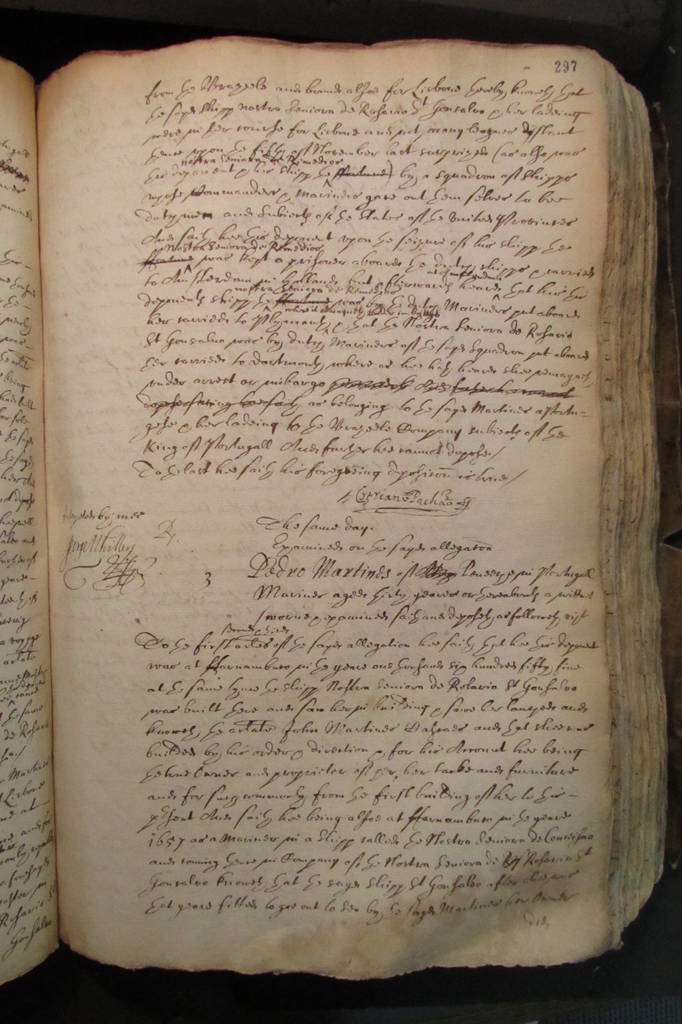 297
from the Brazeele and bound alsoe for Lisbone hereby knoweth that
the sayd shipp Nostra Seniora de Rosario St Gonsalvo & her ladeing
were in her course for Lisbone and not many leagues distant
thence upon the fifth of November last surprized (as alsoe was
Nostra Seniora de Remedios
this deponent & his shipp the) by a squadron of shipps
whose Commanders & Mariners gave out them selves to bee
dutchmen and subiects of the States of the United Provinces
And saith hee this deponent upon the seizure of his shipp the
Nostra Seniora de Remedios
was kept a prisoner aboard the dutch shipps & carried
to Amsterdam in Holland but afterwards heard that this his
deponents shipp the Nostra Seniora de Remedios was by the dutch Mariners put aboard
her carried to Plymouth & that the Nostra Seniora de Rosario
St Gonsalvo was by dutch Mariners of the sayd squadron put aboard
her carried to dartmouth where as hee hath heard shee remayneth
under arrest or imbargo
as belonging to the sayd Martines a Portu-
gese & her ladeing to the Brazeele Company subiects of the
King of Portugall And further hee cannot depose/
To the last hee saith his foregoeing deposition is true/
The same day.
Examined on the sayd allegation
3 Pedro Martines of in Portugall
Mariner aged thirty yeares or thereabouts a wittnes
sworne & examined saith and deposeth as followeth vizt
To the first articles of the sayd allegation hee saith that hee this deponent
was at ffarnambuco in the yeare one thousand six hundred fifty five
at the same tyme the shipp Nostra Seniora de Rosario St Gonsalvo
was built there and saw her in building & saw her lanched and
knoweth the arlate John Martines and that shee was
builded by his order & direction & for his Account hee being
the true Owner and proprietor of her, her tackle and furniture
and soe sayd commonly from the first building of her to this
present And saith hee being alsoe at ffarnambuco in the yeare
1657 as a Mariner in a shipp called the Nostra Seniora de
and comeing thence in Company of the Nostra Seniora de Rosario St
Gonsalvo knoweth that the sayd shipp St Gonsalvo
that yeare fitted to goe out to sea by the sayd Martines her Owner